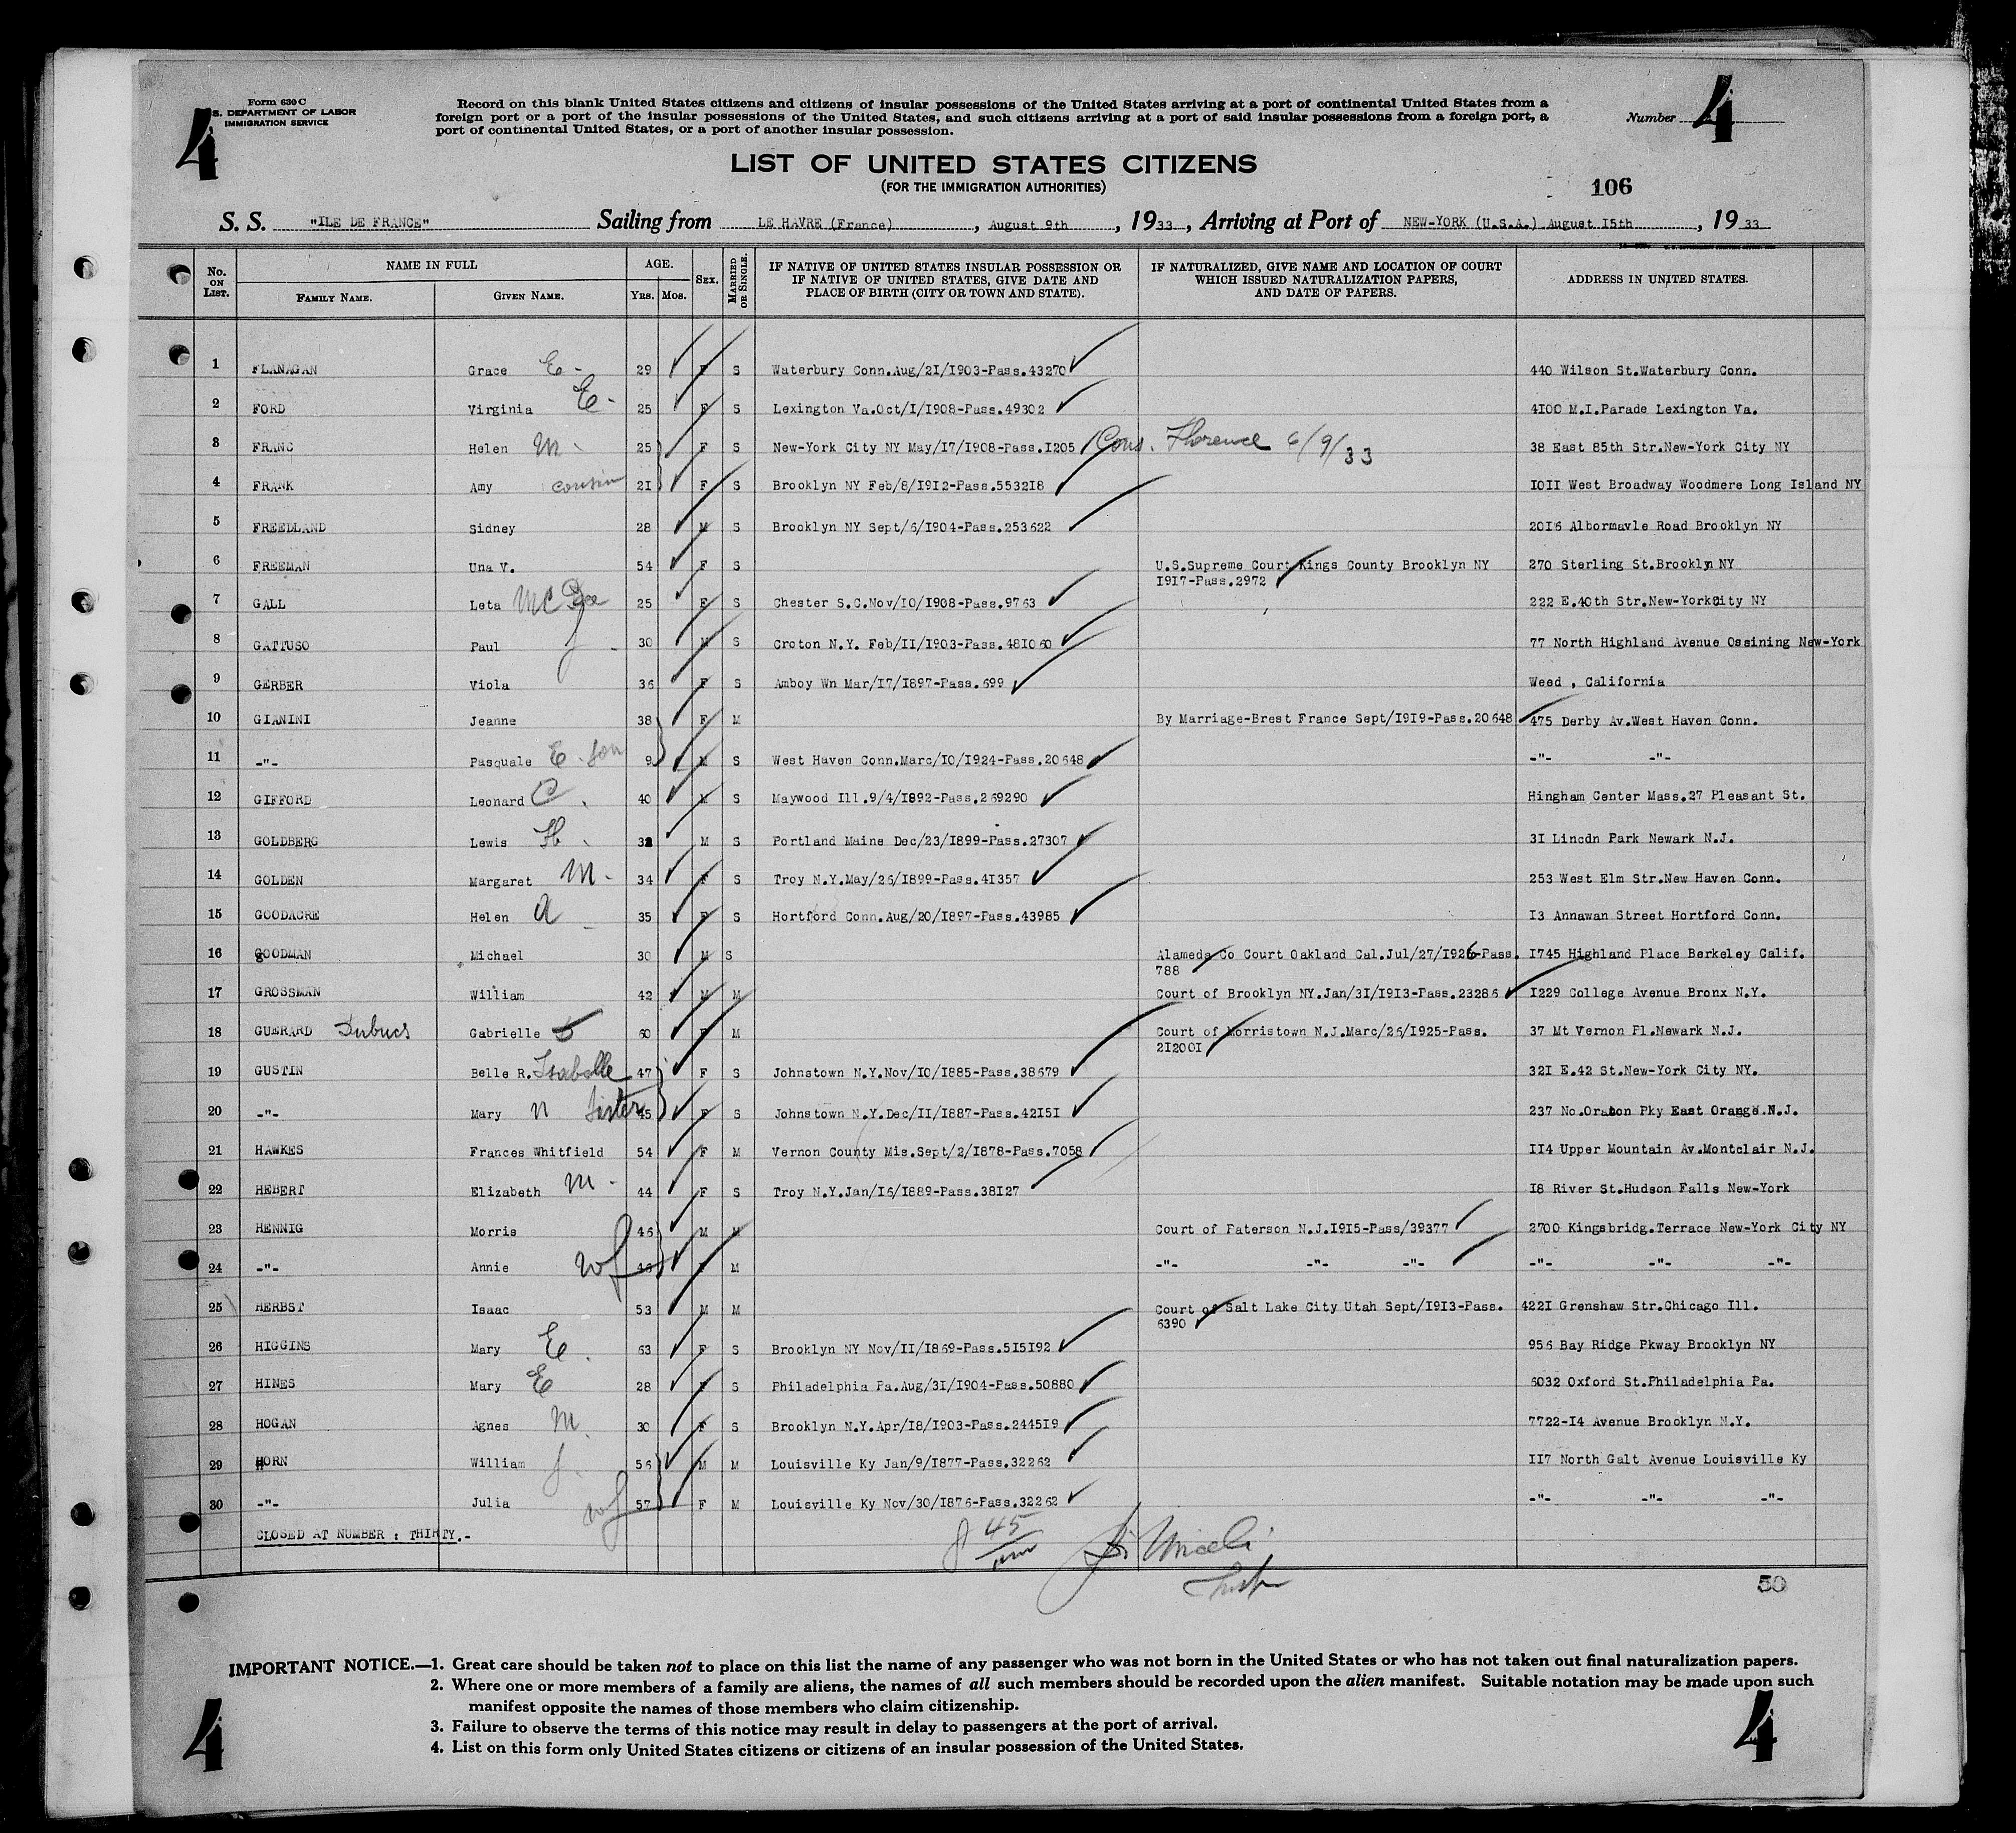 4
Form 630 C
S. DEPARTMENT OF LABOR
IMMIGRATION SERVICE
Record on this blank United States citizens and citizens of insular possessions of the United States arriving at a port of continental United States from a
foreign port or a port of the insular possessions of the United States, and such citizens arriving at a port of said insular possessions from a foreign port, a
port of continental United States, or a port of another insular possession.
Number 4
LIST OF UNITED STATES CITIZENS
(FOR THE IMMIGRATION AUTHORITIES)
106
S. S. "ILE DE FRANCE" Sailing from LE HAVRE (France), August 9th, 1933, Arriving at Port of NEW-YORK (U.S.A.) August 15th, 1933
No. ON LIST. NAME IN FULL FAMILY NAME. GIVEN NAME. AGE. YRS. MOS. SEX. MARRIED OR SINGLE. IF NATIVE OF UNITED STATES INSULAR POSSESSION OR IF NATIVE OF UNITED STATES, GIVE DATE AND PLACE OF BIRTH (CITY OR TOWN AND STATE). IF NATURALIZED, GIVE NAME AND LOCATION OF COURT WHICH ISSUED NATURALIZATION PAPERS, AND DATE OF PAPERS. ADDRESS IN UNITED STATES.
1 FLANAGAN Grace E - 29 F S Waterbury Conn.Aug/2I/I903-Pass.43270 440 Wilson St.Waterbury Conn.
2 FORD Virginia E - 25 F S Lexington Va.Oct/I/I908-Pass.49302 4I00 M.I.Parade Lexington Va.
3 FRANC Helen M - 25 F S New-York City NY May/I7/I908-Pass.I205 Cons. Florence 6/9/33 38 East 85th Str.New-York City NY
4 FRANK Amy cousin 2I F S Brooklyn NY Feb/8/I9I2-Pass.5532I8 I0II West Broadway Woodmere Long Island NY
5 FREEDLAND Sidney 28 M S Brooklyn NY Sept/6/I904-Pass.253622 20I6 Albormavle Road Brooklyn NY
6 FREEMAN Una V. 54 F S U.S.Supreme Court Kings County Brooklyn NY 270 Sterling St.Brooklyn NY
I9I7-Pass.2972
7 GALL Leta McGee 25 F S Chester S.C.Nov/I0/I908-Pass.9763 222 E.40th Str.New-York City NY
8 GATTUSO Paul J - 30 M S Croton N.Y. Feb/II/I903-Pass.48I060 77 North Highland Avenue Ossining New-York
9 GERBER Viola 36 F S Amboy Wn Mar/I7/I897-Pass.699 Weed , California
10 GIANINI Jeanne 38 F M By Marriage-Brest France Sept/I9I9-Pass.20648 475 Derby Av.West Haven Conn.
11 -"- Pasquale E. son 9 M S West Haven Conn.Marc/I0/I924-Pass.20648 -"- -"-
12 GIFFORD Leonard C. 40 M S Maywood Ill.9/4/I892-Pass.269290 Hingham Center Mass.27 Pleasant St.
13 GOLDBERG Lewis H. M S Portland Maine Dec/23/I899-Pass.27307 3I Lincdn Park Newark N.J.
14 GOLDEN Margaret M - 34 F S Troy N.Y.May/26/I899-Pass.4I357 253 West Elm Str.New Haven Conn.
15 GOODACRE Helen A - 35 F S Hortford Conn.Aug/20/I897-Pass.43985 I3 Annawan Street Hortford Conn.
16 GOODMAN Michael 30 M S Alameda Co Court Oakland Cal.Jul/27/I926-Pass. I745 Highland Place Berkeley Calif.
788
17 GROSSMAN William 42 M M Court of Brooklyn NY.Jan/3I/I9I3-Pass.23286 I229 College Avenue Bronx N.Y.
18 GUERARD Dubucs Gabrielle 60 F M Court of Morristown N.J.Marc/26/I925-Pass. 37 Mt Vernon Pl.Newark N.J.
2I200I
19 GUSTIN Belle R. Isabelle 47 F S Johnstown N.Y.Nov/I0/I885-Pass.38679 32I E.42 St.New-York City NY.
20 -"- Mary N sister 45 F S Johnstown N.Y.Dec/II/I887-Pass.42I5I 237 No.Oraton Pky East Orange N.J.
21 HAWKES Frances Whitfield 54 F M Vernon County Mis.Sept/2/I878-Pass.7058 II4 Upper Mountain Av.Montclair N.J.
22 HEBERT Elizabeth M - 44 F S Troy N.Y.Jan/I6/I889-Pass.38I27 I8 River St.Hudson Falls New-York
23 HENNIG Morris 46 M M Court of Paterson N.J.I9I5-Pass/39377 2700 Kingsbridg.Terrace New-York City NY
24 -"- Annie wf 46 F M -"- -"- -"- -"- -"- -"-
25 HERBST Isaac 53 M M Court of Salt Lake City Utah Sept/I9I3-Pass. 422I Grenshaw Str.Chicago Ill.
6390
26 HIGGINS Mary E. 63 F S Brooklyn NY Nov/II/I869-Pass.5I5I92 956 Bay Ridge Pkway Brooklyn NY
27 HINES Mary E 28 F S Philadelphia Pa.Aug/3I/I904-Pass.50880 6032 Oxford St.Philadelphia Pa.
28 HOGAN Agnes M. 30 F S Brooklyn N.Y.Apr/I8/I903-Pass.2445I9 7722-I4 Avenue Brooklyn N.Y.
29 HORN William J. 56 M M Louisville Ky Jan/9/I877-Pass.32262 II7 North Galt Avenue Louisville Ky
30 -"- Julia wf 57 F M Louisville Ky Nov/30/I876-Pass.32262 -"- -"- -"-
CLOSED AT NUMBER : THIRTY.-
45
50
IMPORTANT NOTICE.—1. Great care should be taken not to place on this list the name of any passenger who was not born in the United States or who has not taken out final naturalization papers.
2. Where one or more members of a family are aliens, the names of all such members should be recorded upon the alien manifest. Suitable notation may be made upon such
manifest opposite the names of those members who claim citizenship.
3. Failure to observe the terms of this notice may result in delay to passengers at the port of arrival.
4. List on this form only United States citizens or citizens of an insular possession of the United States.
4
4